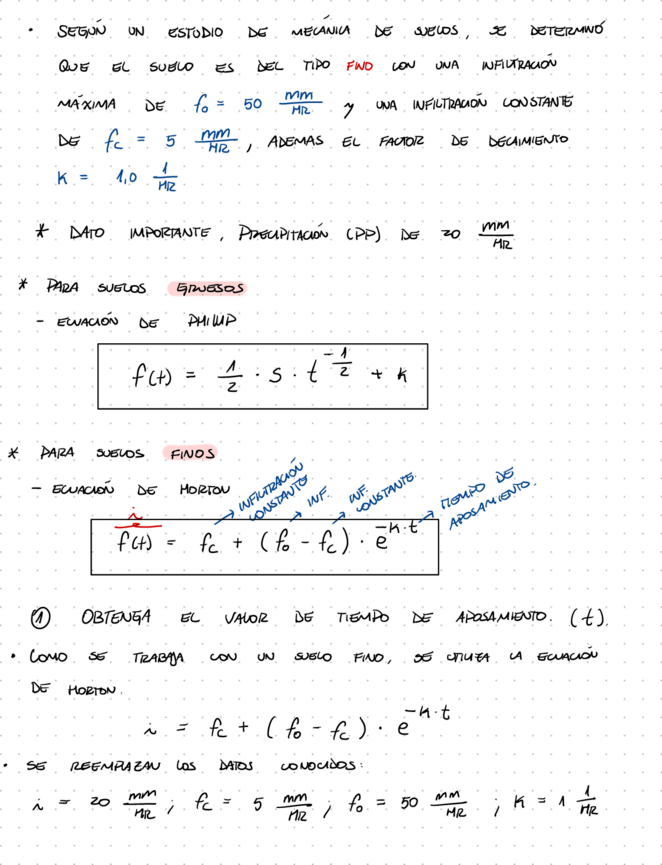 • SEGÚN UN ESTUDIO DE MECÁNICA DE SUELOS, SE DETERMINÓ
QUE EL SUELO ES DEL TIPO FINO CON UNA INFILTRACIÓN
MÁXIMA DE f₀ = 50 mm/HR y UNA INFILTRACIÓN CONSTANTE
DE fc = 5 mm/HR, ADEMAS EL FACTOR DE DECAIMIENTO
K = 1,0 1/HR
* DATO IMPORTANTE, PRECIPITACIÓN (PP) DE 20 mm/HR
* PARA SUELOS GRUESOS
- ECUACIÓN DE PHILLIP
f(t) = 1/2 · S · t^(-1/2) + k
* PARA SUELOS FINOS
- ECUACIÓN DE HORTON
i
→ INFILTRACIÓN CONSTANTE
→ INF.
→ INF. CONSTANTE.
→ TIEMPO DE APOSAMIENTO.
f(t) = fc + (f₀ - fc) · e^(-k·t)
① OBTENGA EL VALOR DE TIEMPO DE APOSAMIENTO. (t).
• COMO SE TRABAJA CON UN SUELO FINO, SE UTILIZA LA ECUACIÓN
DE HORTON.
i = fc + (f₀ - fc) · e^(-k·t)
• SE REEMPLAZAN LOS DATOS CONOCIDOS:
i = 20 mm/HR; fc = 5 mm/HR; f₀ = 50 mm/HR; K = 1 1/HR